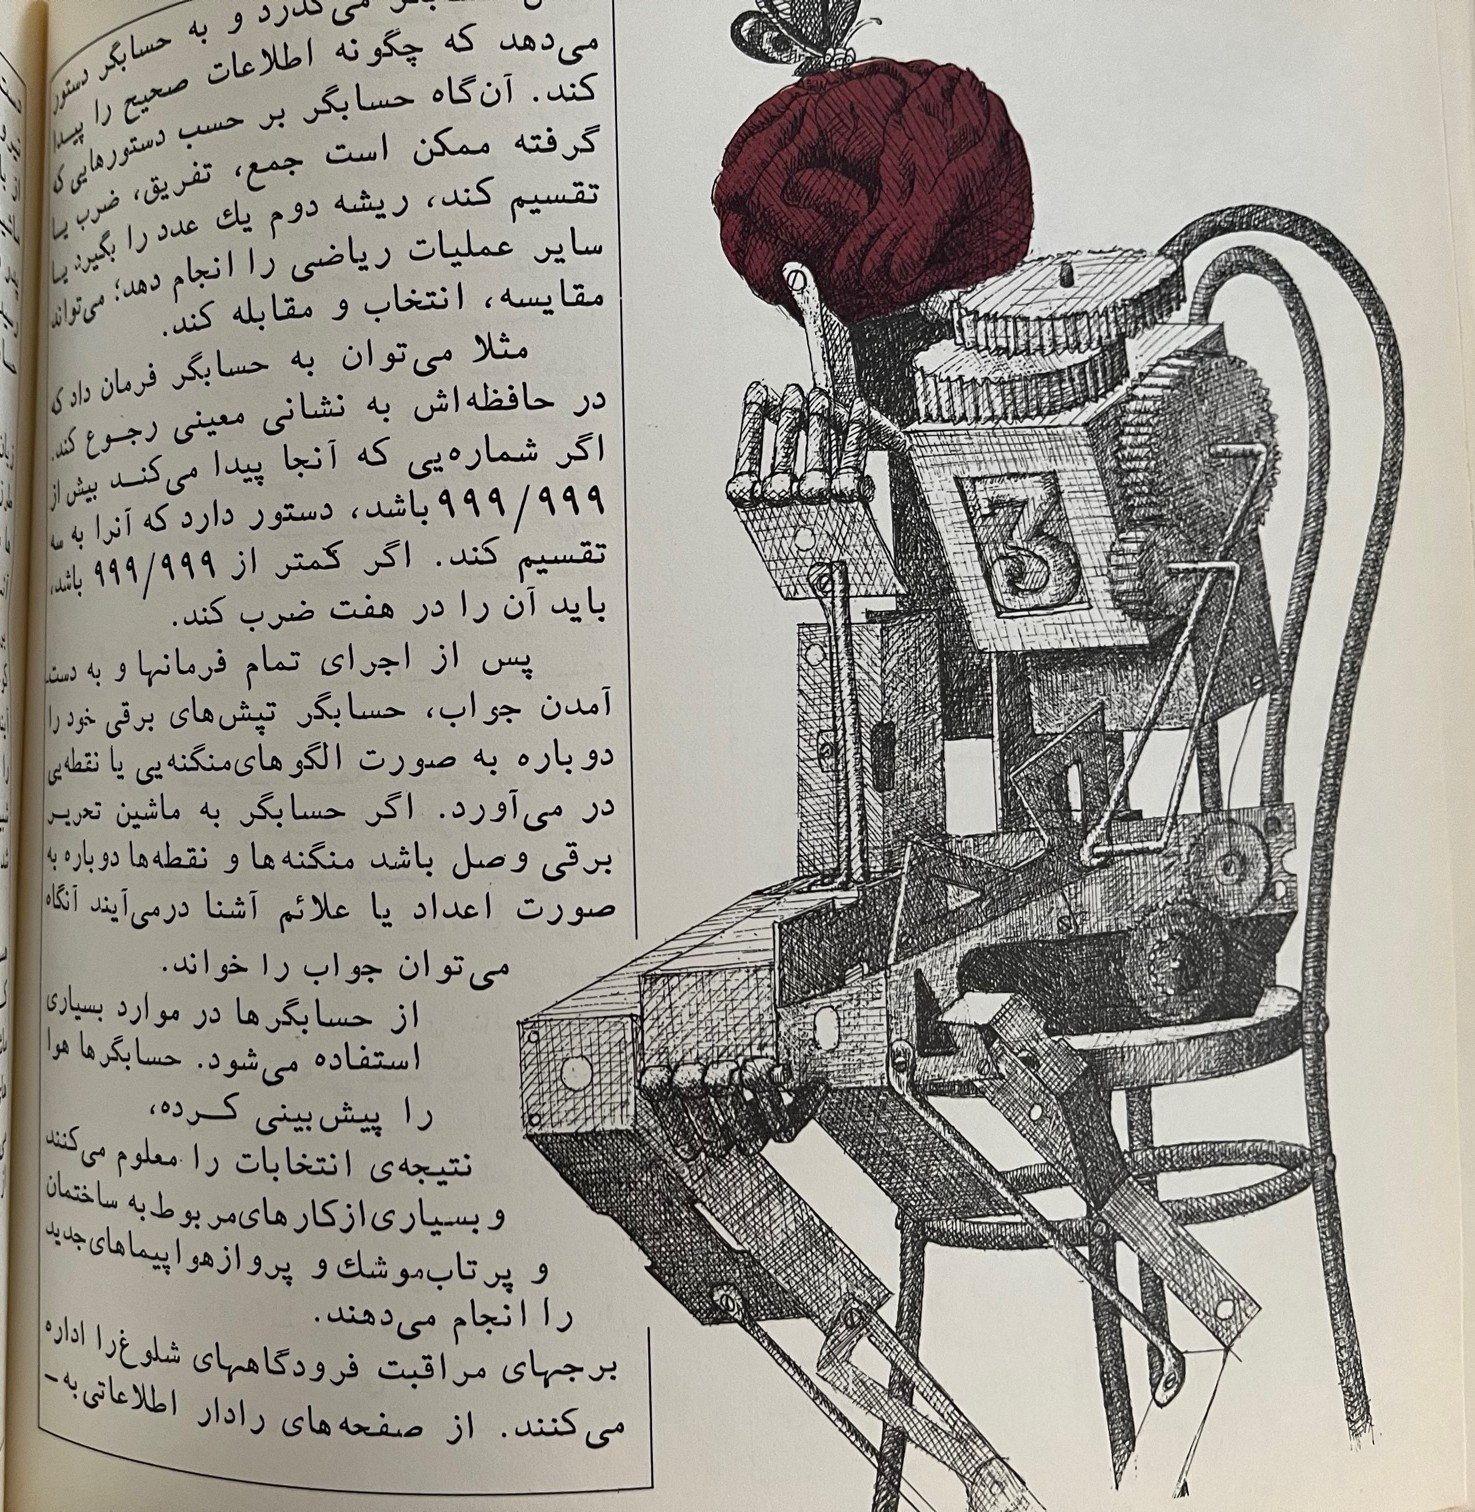 حسابگر می‌گذرد و به حسابگر دستور
می‌دهد که چگونه اطلاعات صحیح را پیدا
کند. آن‌گاه حسابگر بر حسب دستورهایی که
گرفته ممکن است جمع، تفریق، ضرب یا
تقسیم کند، ریشه دوم یك عدد را بگیرد یا
سایر عملیات ریاضی را انجام دهد؛ می‌تواند
مقایسه، انتخاب و مقابله کند.
مثلا می‌توان به حسابگر فرمان داد که
در حافظه‌اش به نشانی معینی رجوع کند.
اگر شماره‌یی که آنجا پیدا می‌کند بیش از
۹۹۹/۹۹۹ باشد، دستور دارد که آنرا به سه
تقسیم کند. اگر کمتر از ۹۹۹/۹۹۹ باشد،
باید آن را در هفت ضرب کند.
پس از اجرای تمام فرمانها و به دست
آمدن جواب، حسابگر تپش‌های برقی خود را
دوباره به صورت الگوهای منگنه‌یی یا نقطه‌یی
در می‌آورد. اگر حسابگر به ماشین تحریر
برقی وصل باشد منگنه‌ها و نقطه‌ها دوباره به
صورت اعداد یا علائم آشنا درمی‌آیند آنگاه
می‌توان جواب را خواند.
از حسابگرها در موارد بسیاری
استفاده می‌شود. حسابگرها هوا
را پیش‌بینی کرده،
نتیجه‌ی انتخابات را معلوم می‌کنند
و بسیاری از کارهای مربوط به ساختمان
و پرتاب موشك و پرواز هواپیماهای جدید
را انجام می‌دهند.
برجهای مراقبت فرودگاههای شلوغ را اداره
می‌کنند. از صفحه‌های رادار اطلاعاتی به‌ـ
3